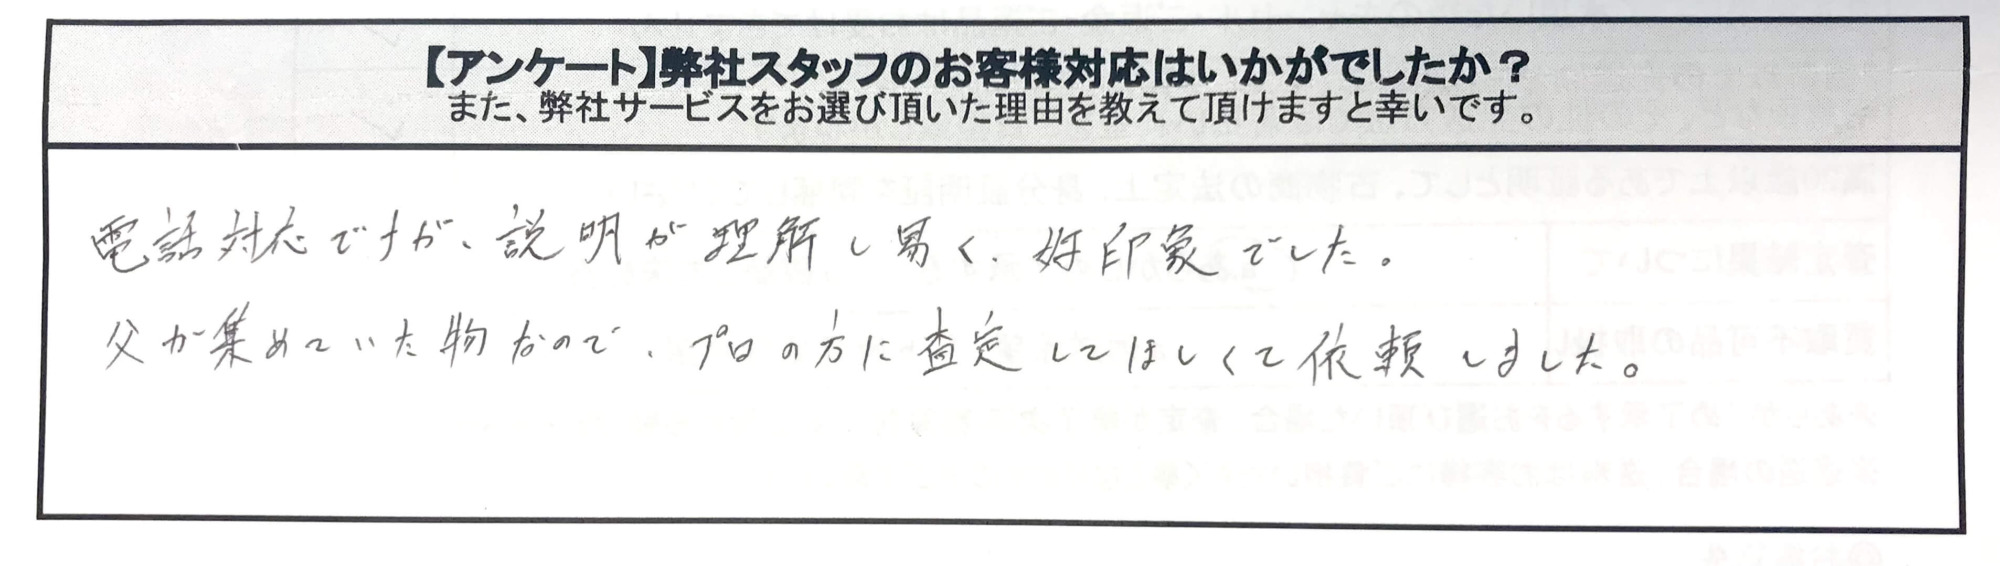 【アンケート】弊社スタッフのお客様対応はいかがでしたか？
また、弊社サービスをお選び頂いた理由を教えて頂けますと幸いです。
電話対応ですが、説明が理解し易く、好印象でした。
父が集めていた物なので、プロの方に査定してほしくて依頼しました。